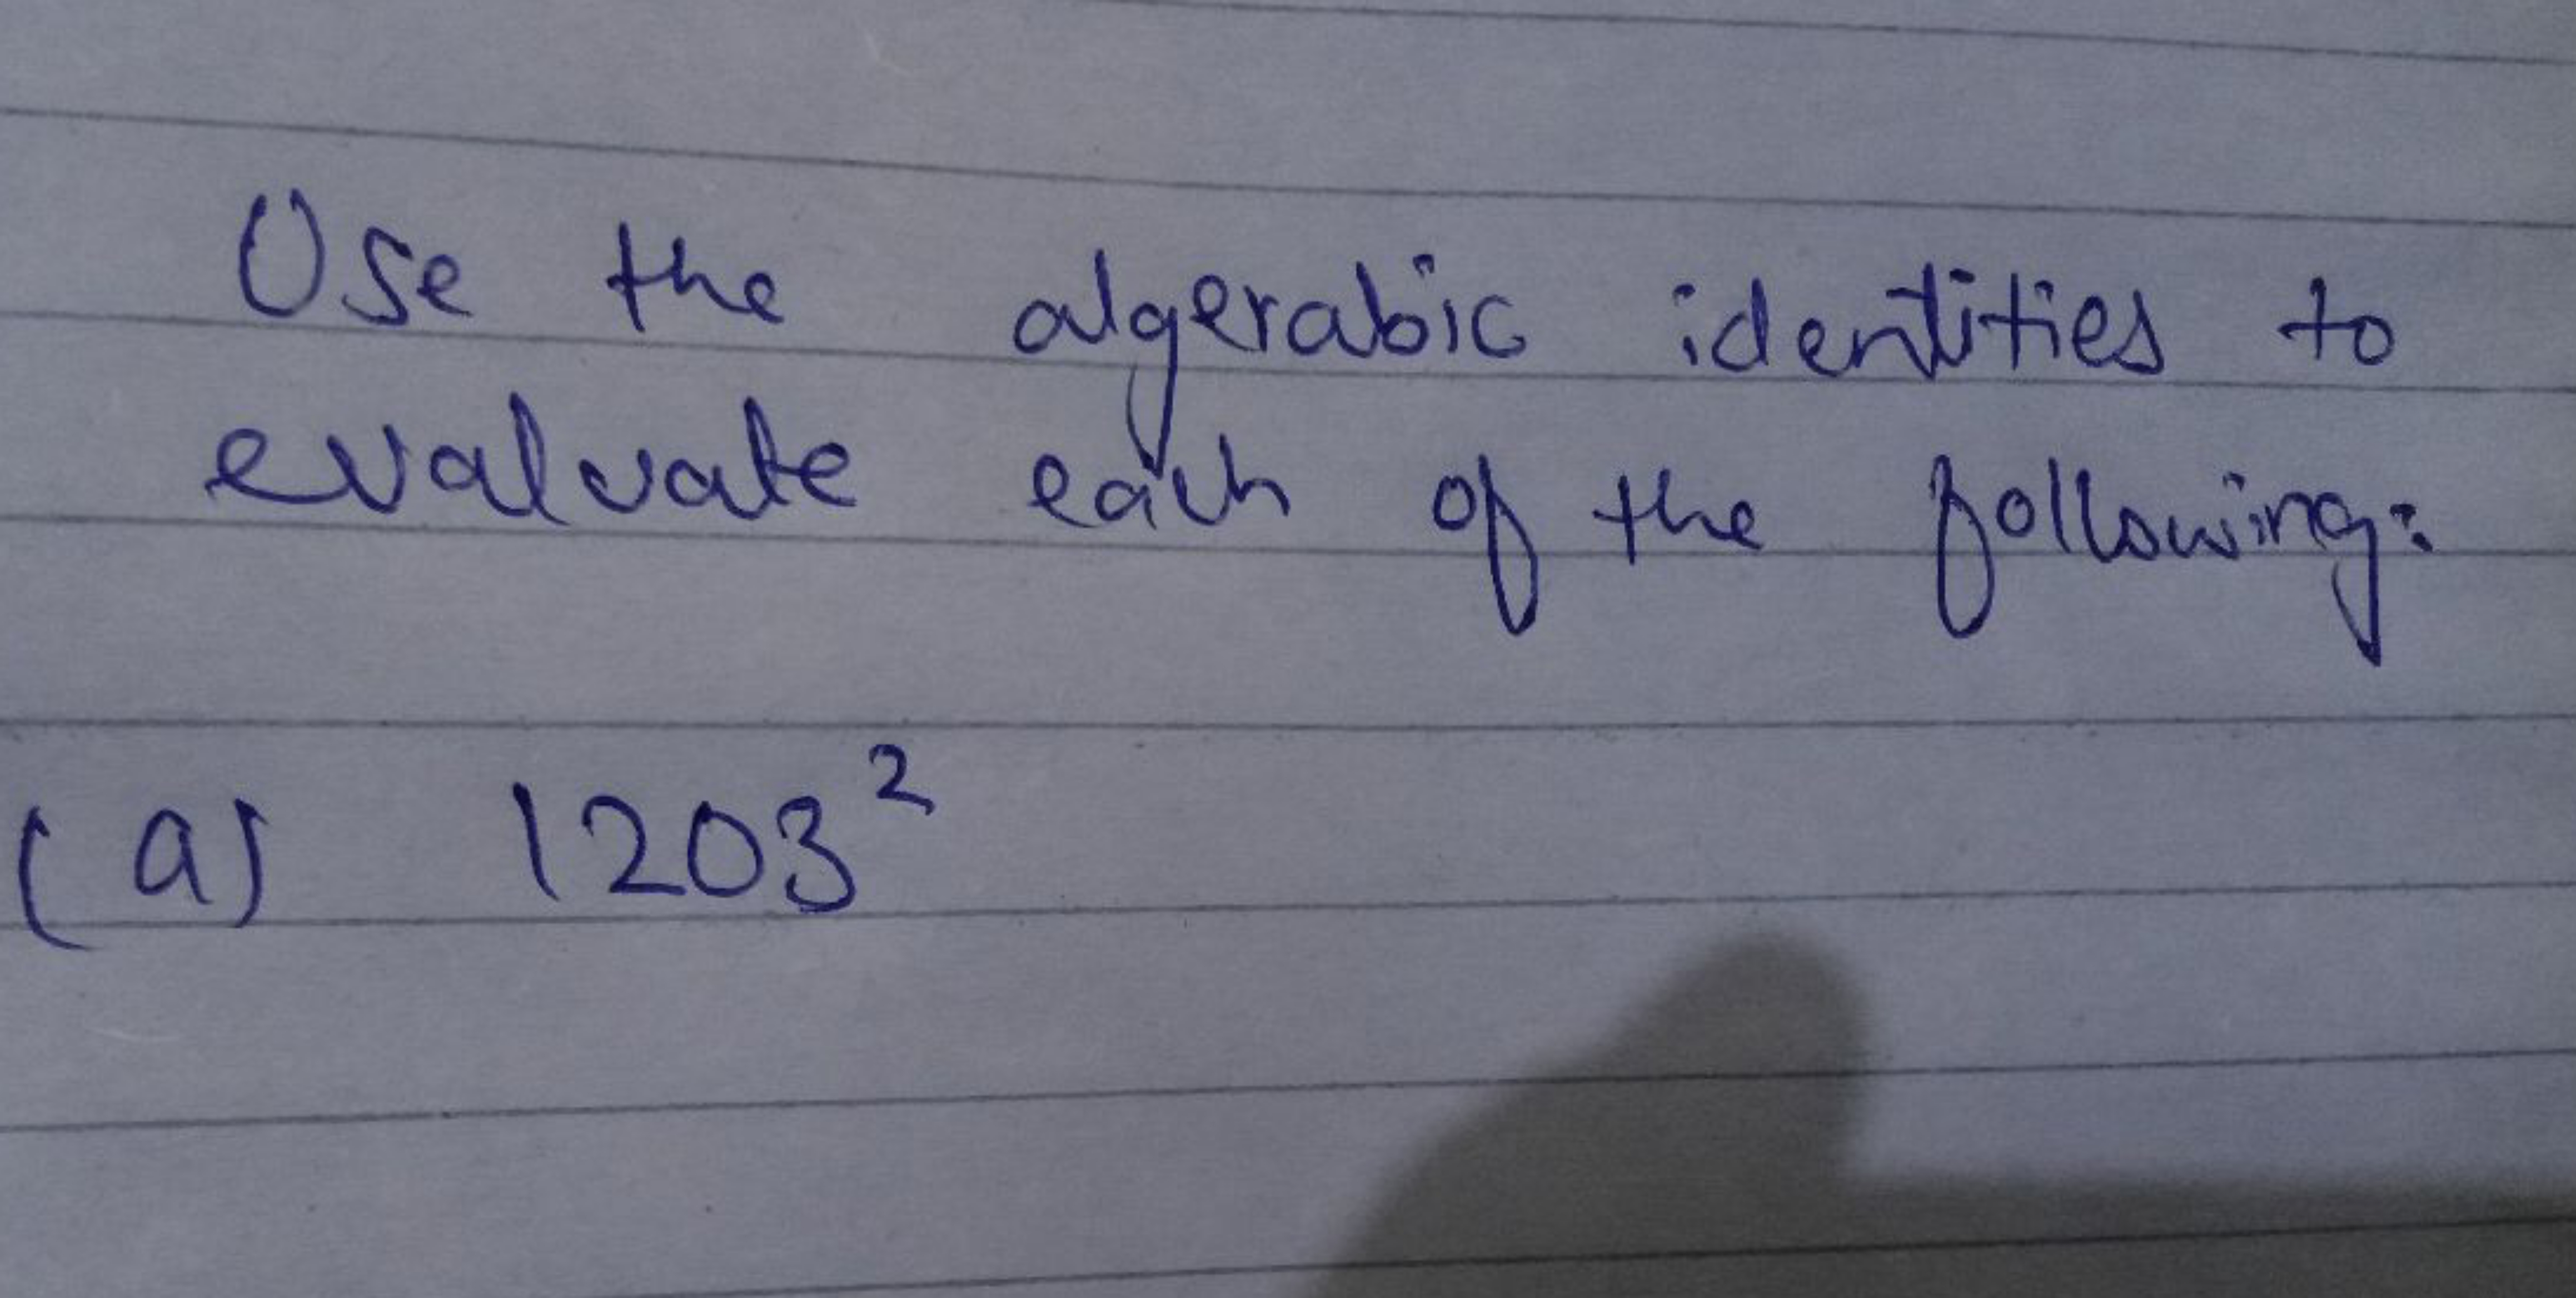 Use the algerabic identities to
evaluate each of the following:
(a) 1203²